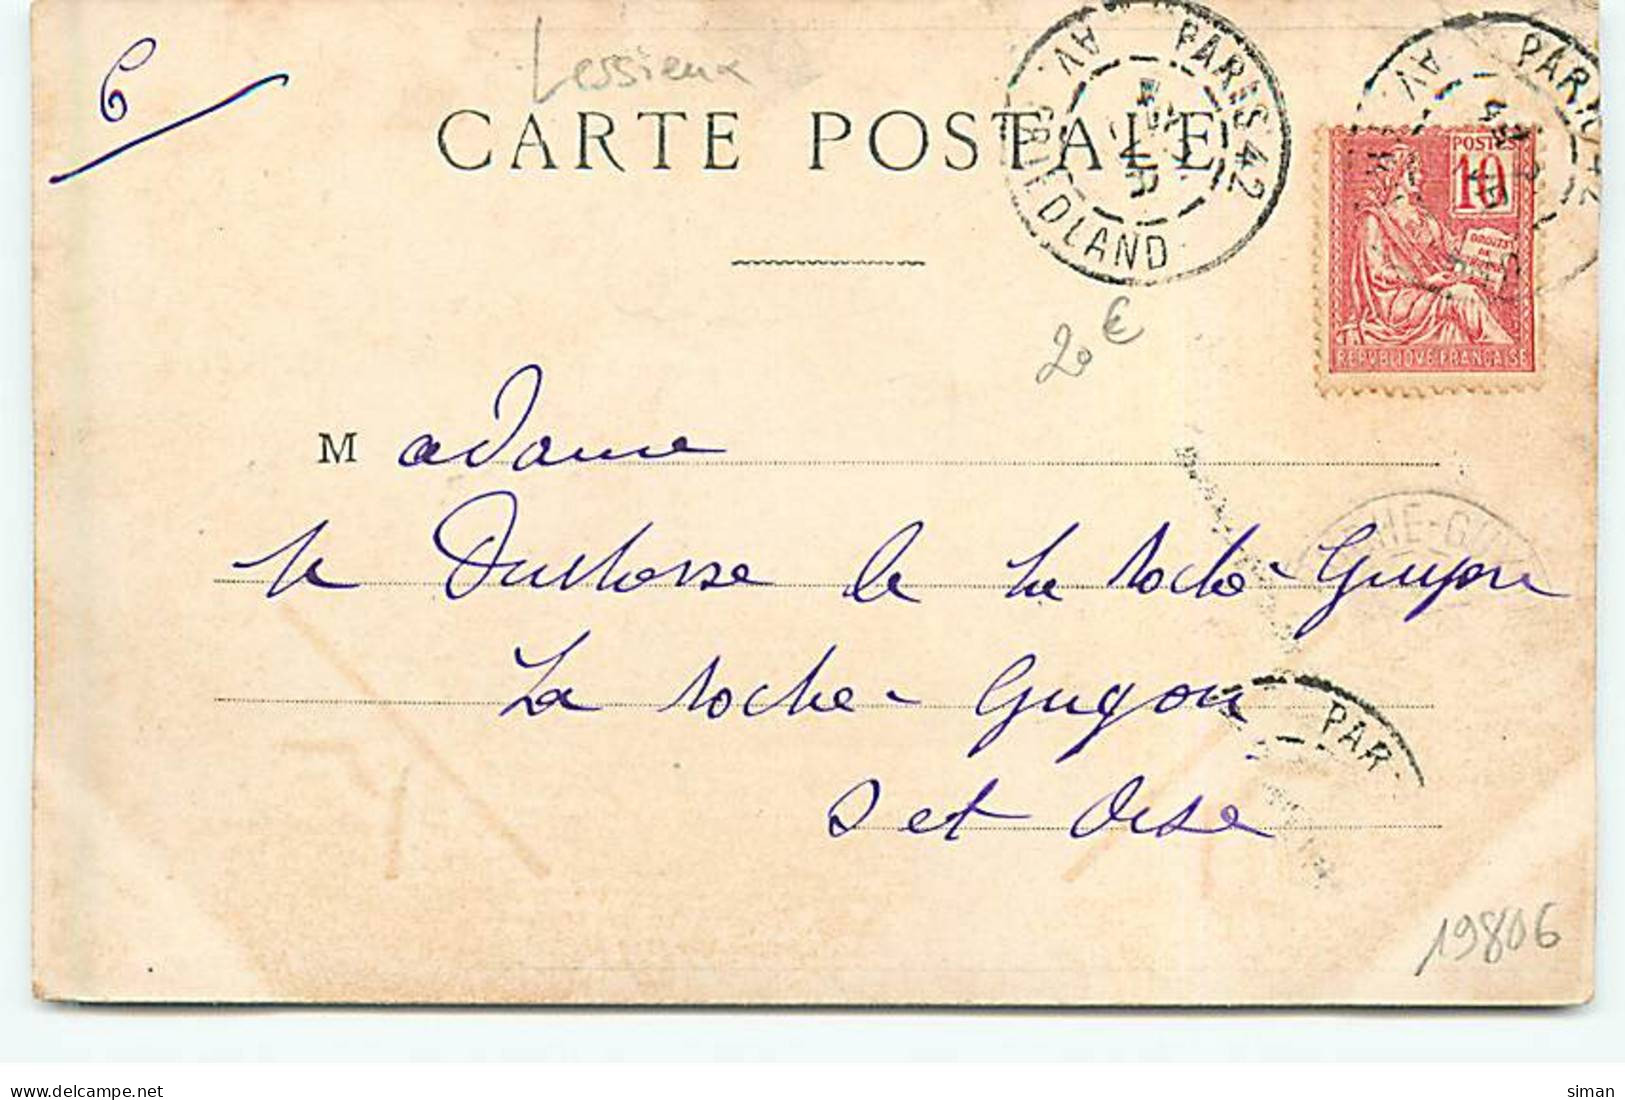 6
Lessieux
CARTE POSTALE
PARIS 42
AV. FRIEDLAND
PARIS 42
AV.
POSTES
10
DROITS DE
REPUBLIQUE FRANÇAISE
20 €
Madame
la Duchesse de la Roche-Guyon
La Roche-Guyon
S et Oise
CHE-GUY
PAR
19806
delcampe.net
siman